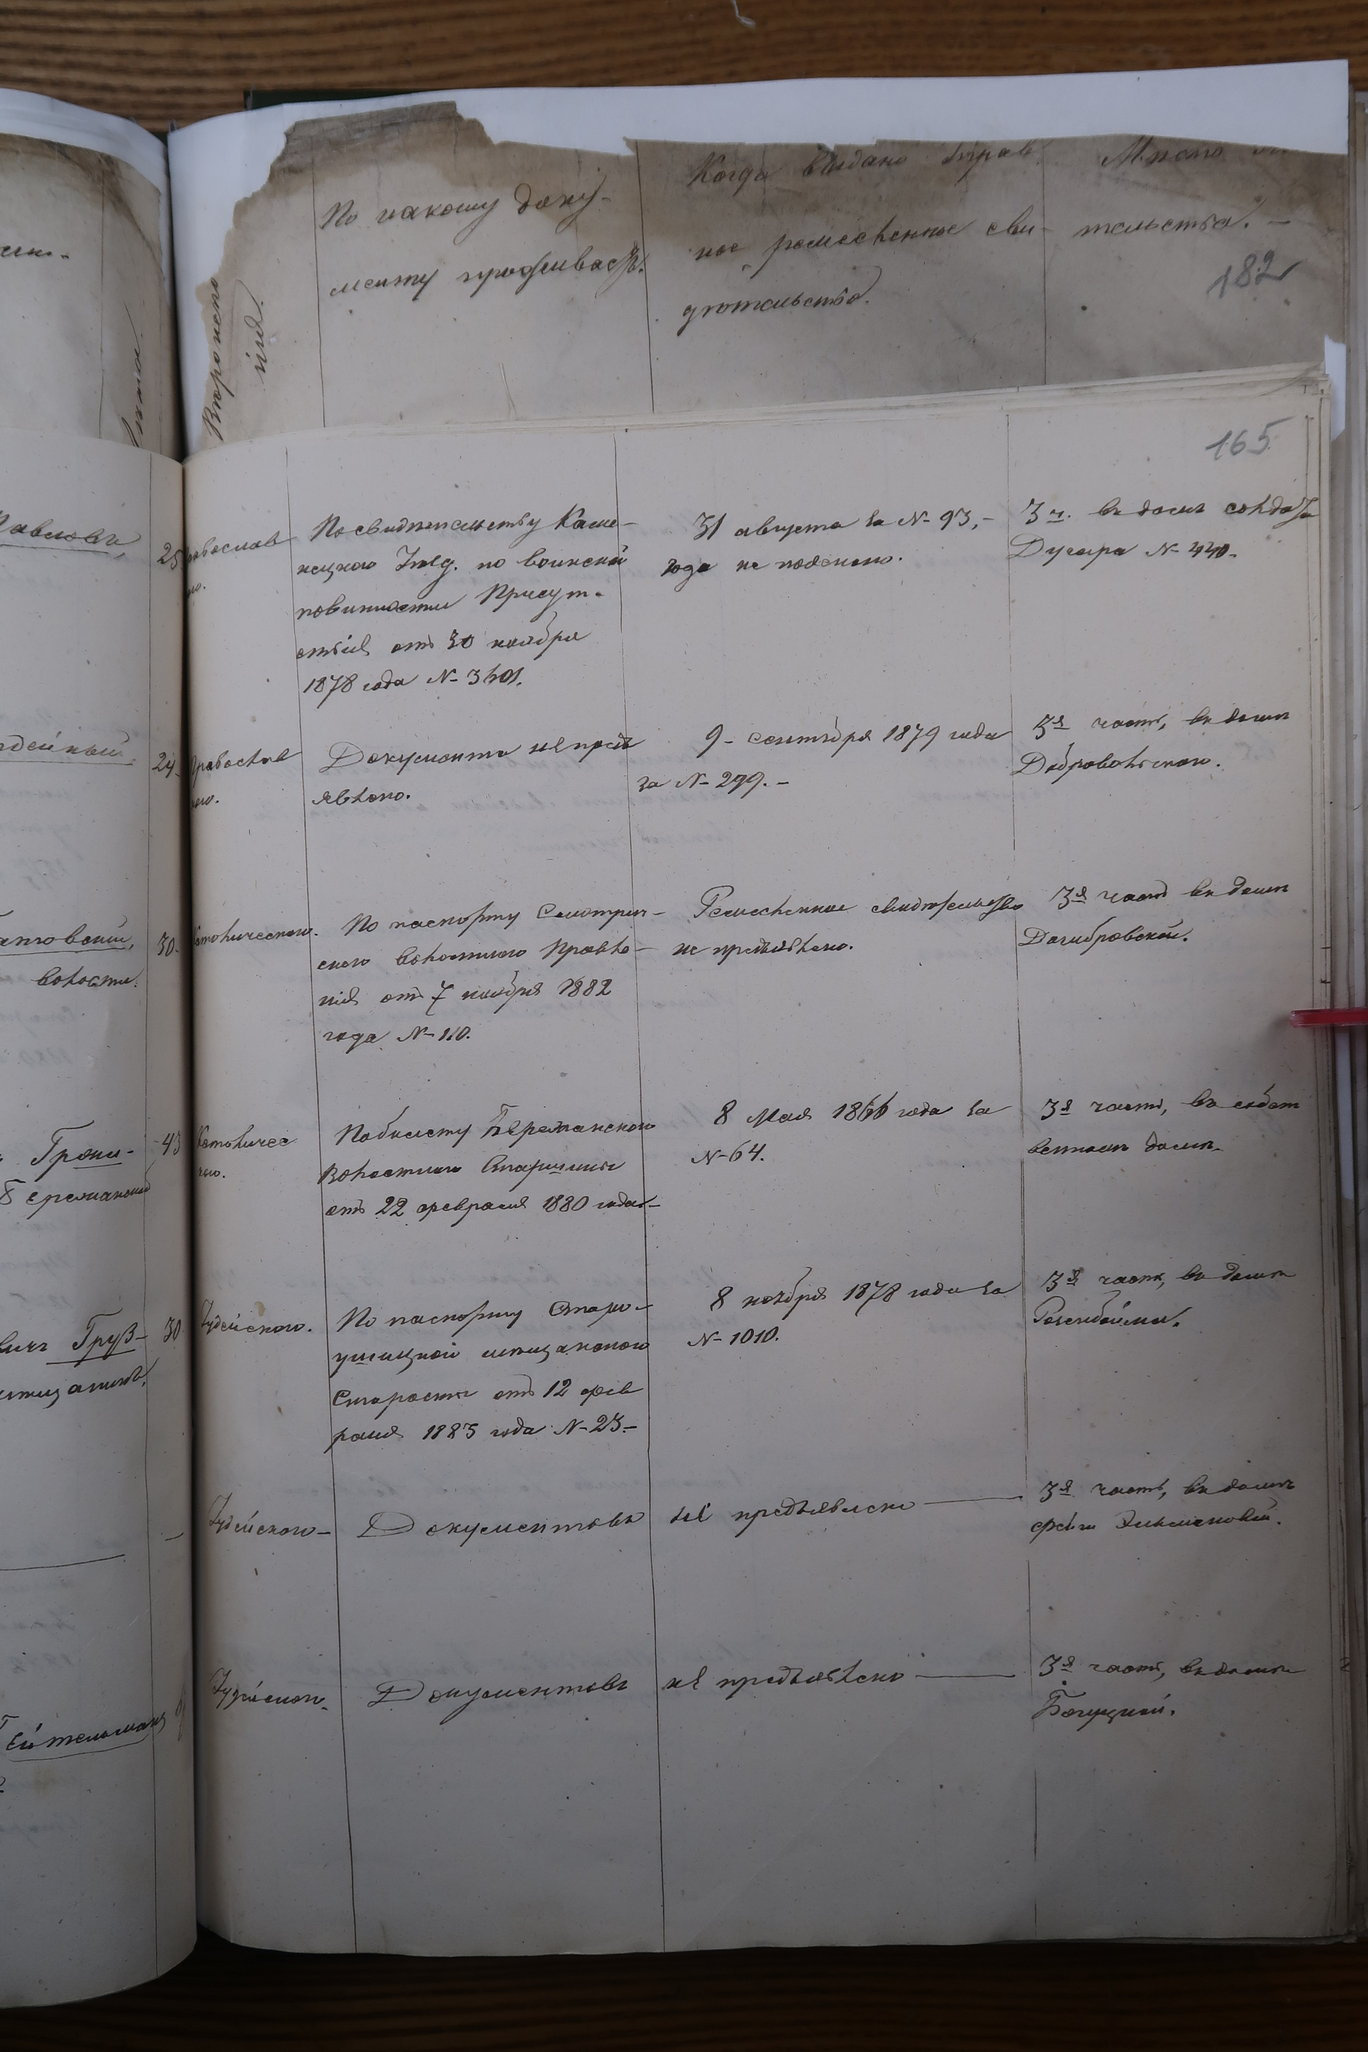 Вероиспо
нія.
По какому доку-
менту проживаетъ.
Когда выдано управ
ное ремесленное сви-
дѣтельство.
Мѣсто жи
тельства. –
182
165
Павловъ,
25
православ
но.
По свидѣтельству Каме-
нецкаго Уѣзд. по воинской
повинности Присут-
ствія отъ 30 ноября
1878 года № 3401.
31 августа за № 93, –
года не пояснено.
3 ч. въ домѣ солдата
№ 440.
24
Православ
наго.
Документа не предъ
явлено.
9 – сентября 1879 года
за № 299. –
3я часть, въ домѣ
Добровольскаго.
волости.
30.
Католическаго.
По паспорту Смотрич-
скаго волостного Правле-
нія отъ 7 ноября 1882
года № 110.
Ремесленное свидѣтельство
не предъявлено.
3я часть въ домѣ
Домбровской.
43
Католичес
каго.
По билету Бережанскаго
Волостного Старшины
отъ 22 февраля 1880 года –
8 Мая 1866 года за
№ 64.
3я часть, въ собст
венномъ домѣ.
Груз-
30
Іудейскаго.
По паспорту Старо-
ушицкой мѣщанскаго
Старосты отъ 12 фев
раля 1883 года № 23 –
8 ноября 1878 года за
№ 1010.
3я часть, въ домѣ
Розенбойма.
Іудейскаго –
Документовъ не предъявлено
3я часть, въ домѣ
Іудейскаго
Документовъ не предъявлено
3я часть, въ домѣ
Богуцкой.
Ейтельманъ